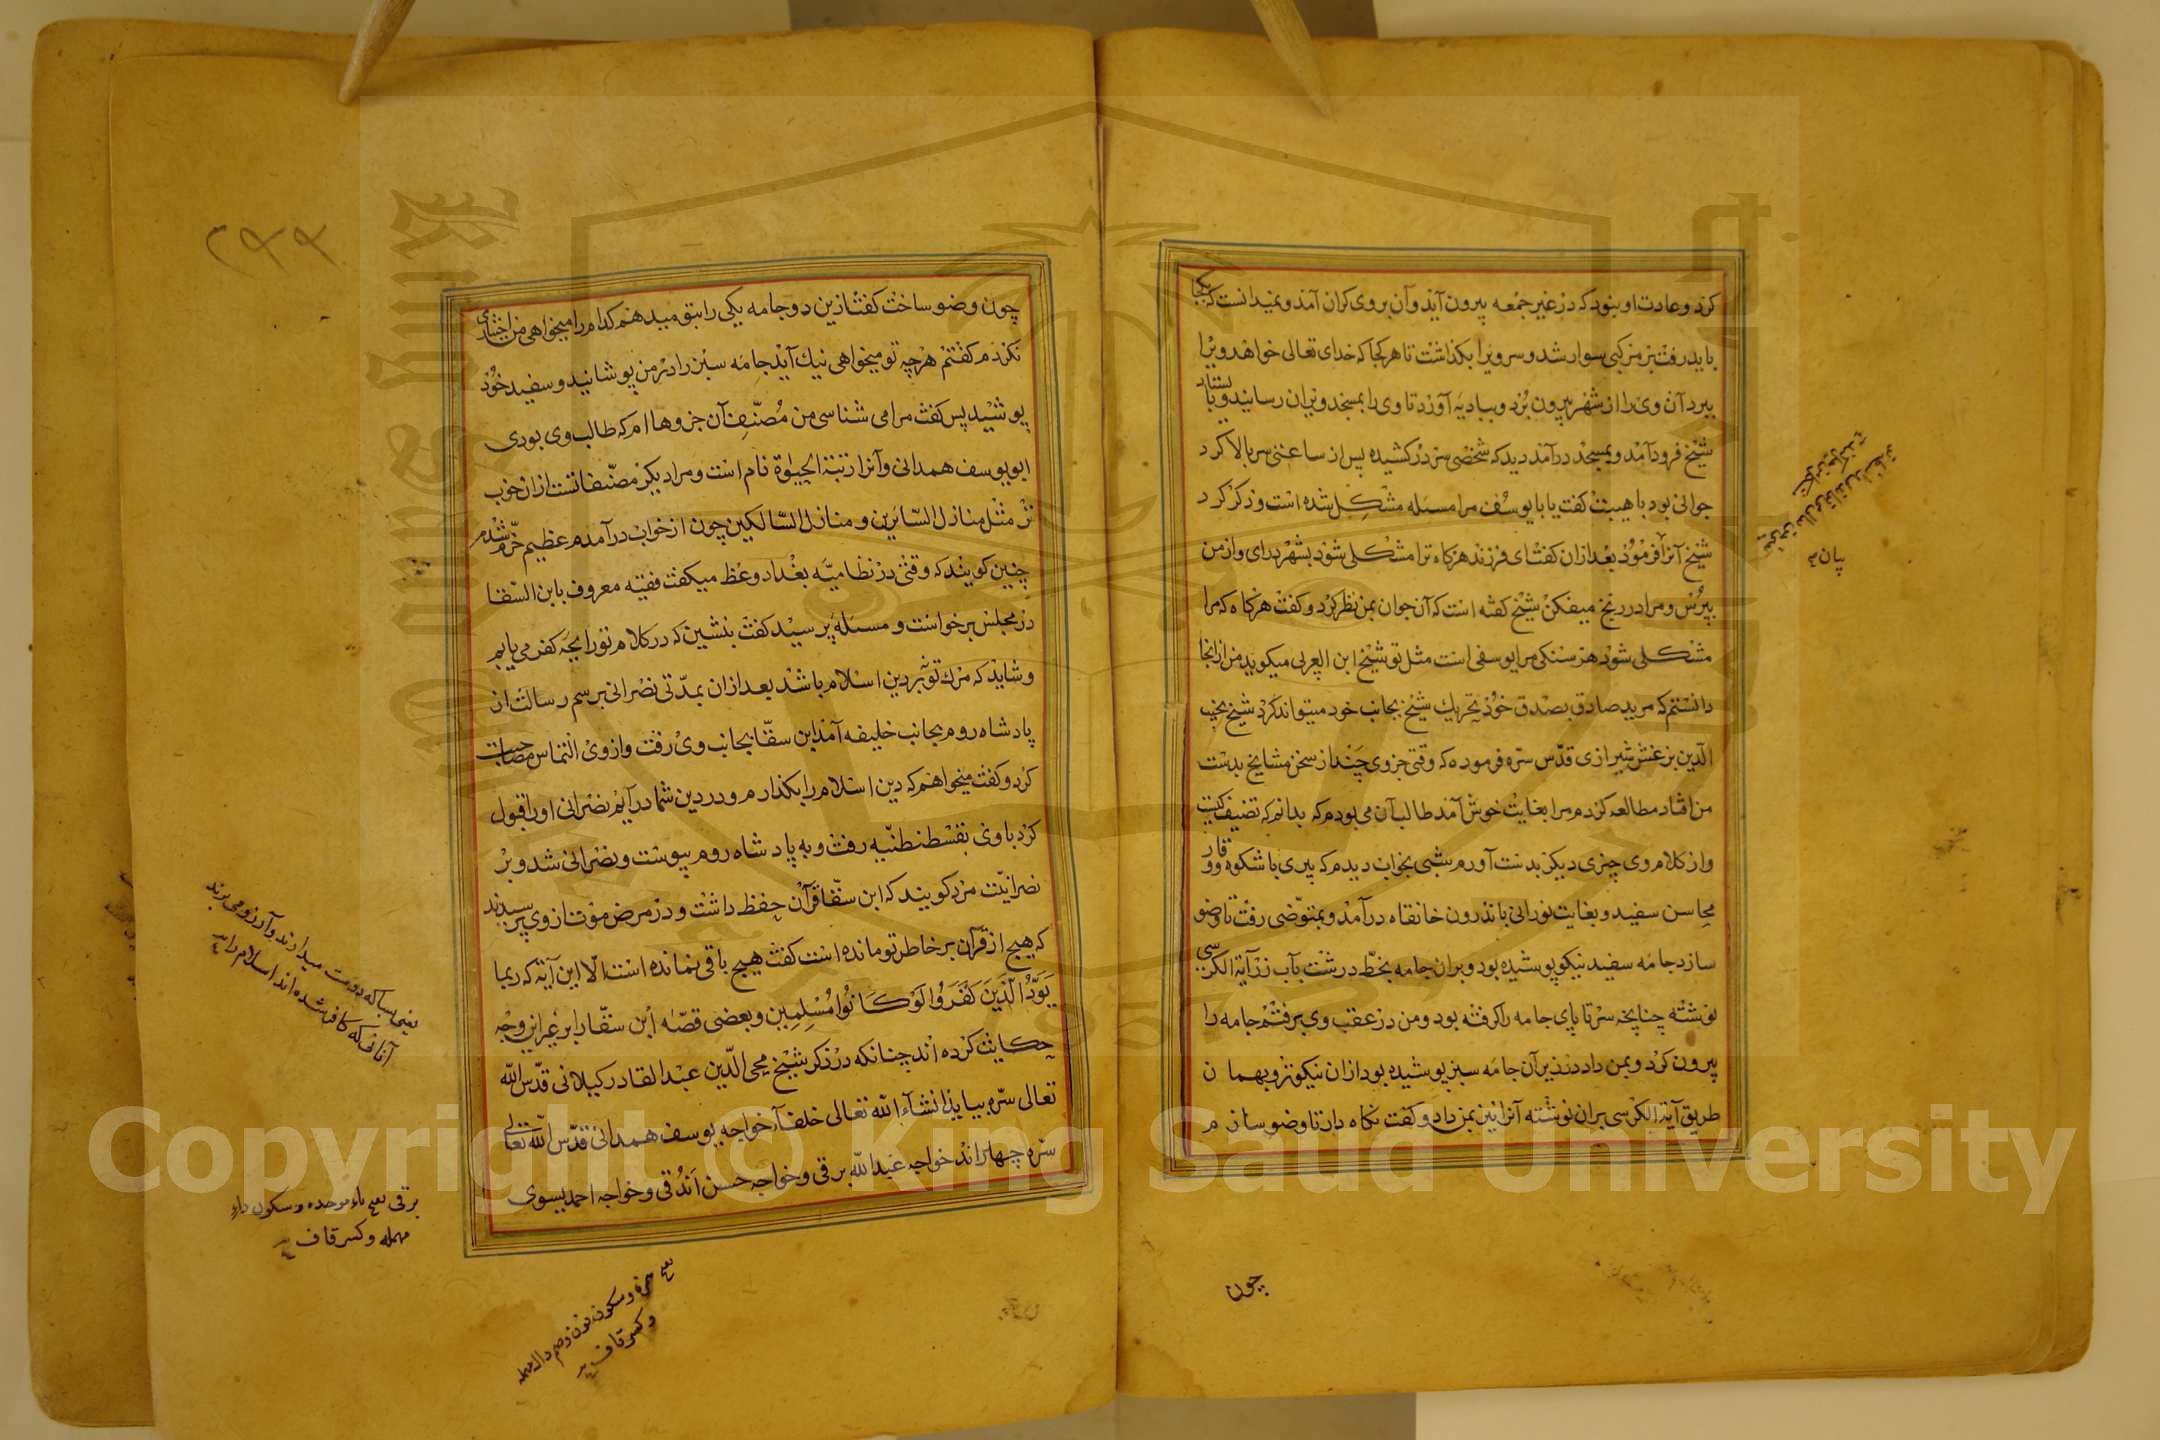 کرد و عادت او نبود که در غیر جمعه بیرون آید و آن بر وی کران آمد و نمیدانست که بکجا
باید رفت بر مرکبی سوار شد و سر ویرا بکذاشت تا هر کجا که خدای تعالی خواهد ویرا
ببرد آن وی را از شهر بیرون برد و ببادیه آورد تا وی را بمسجد ویران رسانید و باستاد
شیخ فرود آمد و بمسجد درآمد دید که شخصی سر در کشیده پس از ساعتی سر بالا کرد
جوانی بود با هیبت کفت یا با یوسف مرا مسئله مشکل شده است و ذکر کرد
شیخ آنرا فرمود بعد ازان کفت ای فرزند هرکاه ترا مشکلی شود بشهر درای و از من
بپرس و مرا در رنج میفکن شیخ کفته است که آن جوان بمن نظر کرد و کفت هرکاه که مرا
مشکلی شود هر سنکی مرا یوسفی است مثل تو شیخ ابن العربی میکوید من ازانجا
دانستم که مرید صادق بصدق خود تحریک شیخ بجانب خود میتواند کرد شیخ نجیب
الدین بزغش شیرازی قدس سره فرموده که وقتی جزوی چند از سخن مشایخ بدست
من افتاد مطالعه کردم مرا بغایت خوش آمد طالب آن می بودم که بدانم که تصنیف کیست
و از کلام وی چیزی دیکر بدست آورم شبی بخواب دیدم که پیری با شکوه و وقار
محاسن سفید و بغایت نورانی باندرون خانقاه درآمد و بمتوضی رفت تا وضو
سازد جامه سفید نیکو پوشیده بود و بران جامه بخط درشت بآب زر آیة الکرسی
نوشته چنانچه سر تا پای جامه را کرفته بود و من در عقب وی برفتم جامه را
بیرون کرد و بمن داد در زیر آن جامه سبز پوشیده بود ازان نیکوتر و بهمان
طریق آیة الکرسی بران نوشته آنرا نیز بمن داد و کفت نکاه دار تا وضو سازم
چون
بیان
چون وضو ساخت کفت ازین دو جامه یکی را بتو میدهم کدام را میخواهی من اختیاری
نکردم کفتم هرچه تو میخواهی نیک آید جامه سبز را در من پوشانید و سفید خود
پوشید پس کفت مرا می شناسی من مصنف آن جزوها ام که طالب وی بودی
ابو یوسف همدانی و آنرا رتبة الحیوة نام است و مرا دیکر مصنفاتست ازان خوب
تر مثل منازل السائرین و منازل السالکین چون از خواب درآمدم عظیم خرم شدم
چنین کویند که وقتی در نظامیه بغداد وعظ میکفت فقیه معروف بابن السقا
در مجلس برخواست و مسئله پرسید کفت بنشین که در کلام تو رایحه کفر می یابم
و شاید که مرک تو نه بر دین اسلام باشد بعد ازان بمدتی نصرانی برسم رسالت از
پادشاه روم بجانب خلیفه آمد ابن سقا بجانب وی رفت و از وی التماس مصاحبت
کرد و کفت میخواهم که دین اسلام را بکذارم و در دین شما درآیم نصرانی او را قبول
کرد با وی بقسطنطنیه رفت و به پادشاه روم پیوست و نصرانی شد و بر
نصرانیت مرد کویند که ابن سقا قرآن حفظ داشت و در مرض موت از وی پرسیدند
که هیچ از قرآن بر خاطر تو مانده است کفت هیچ باقی نمانده است الا این آیة که ربما
یود الذین کفروا لو کانوا مسلمین و بعضی قصه ابن سقا را بر غیر این وجه
حکایت کرده اند چنانکه در ذکر شیخ محی الدین عبد القادر کیلانی قدس الله
تعالی سره بیاید انشاء الله تعالی خلفاء خواجه یوسف همدانی قدس الله تعالی
سره چهار اند خواجه عبد الله برقی و خواجه حسن اندقی و خواجه احمد یسوی
یعنی بسا که دوست میدارند و آرزو می برند
آنانی که کافر شده اند اسلام را
برقی بفتح باء موحده و سکون راء
مهمله و کسر قاف
بفتح همزه و سکون نون و ضم دال مهمله
و کسر قاف
Copyright © King Saud University